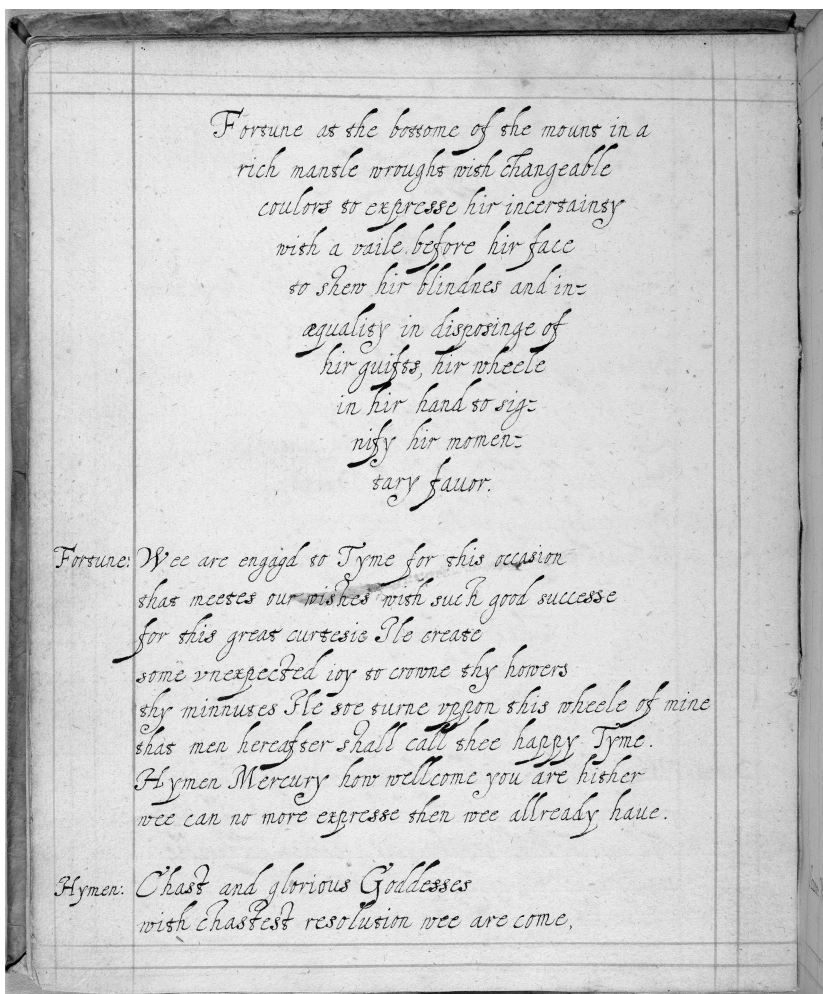 Fortune at the bottome of the mount in a
rich mantle wrought with changeable
coulors to expresse hir incertainty
with a vaile before hir face
to shew hir blindnes and in=
æquality in disposinge of
hir guifts, hir wheele
in hir hand to sig=
nify hir momen=
tary fauor.
Fortune: Wee are engagd to Tyme for this occasion
that meetes our wishes with such good successe
for this great curtesie Ile create
some vnexpected ioy to crowne thy howers
thy minnutes Ile soe turne vppon this wheele of mine
that men hereafter shall call thee happy Tyme.
Hymen Mercury how wellcome you are hither
wee can no more expresse then wee allready haue.
Hymen: Chast and glorious Goddesses
with chastest resolution wee are come,